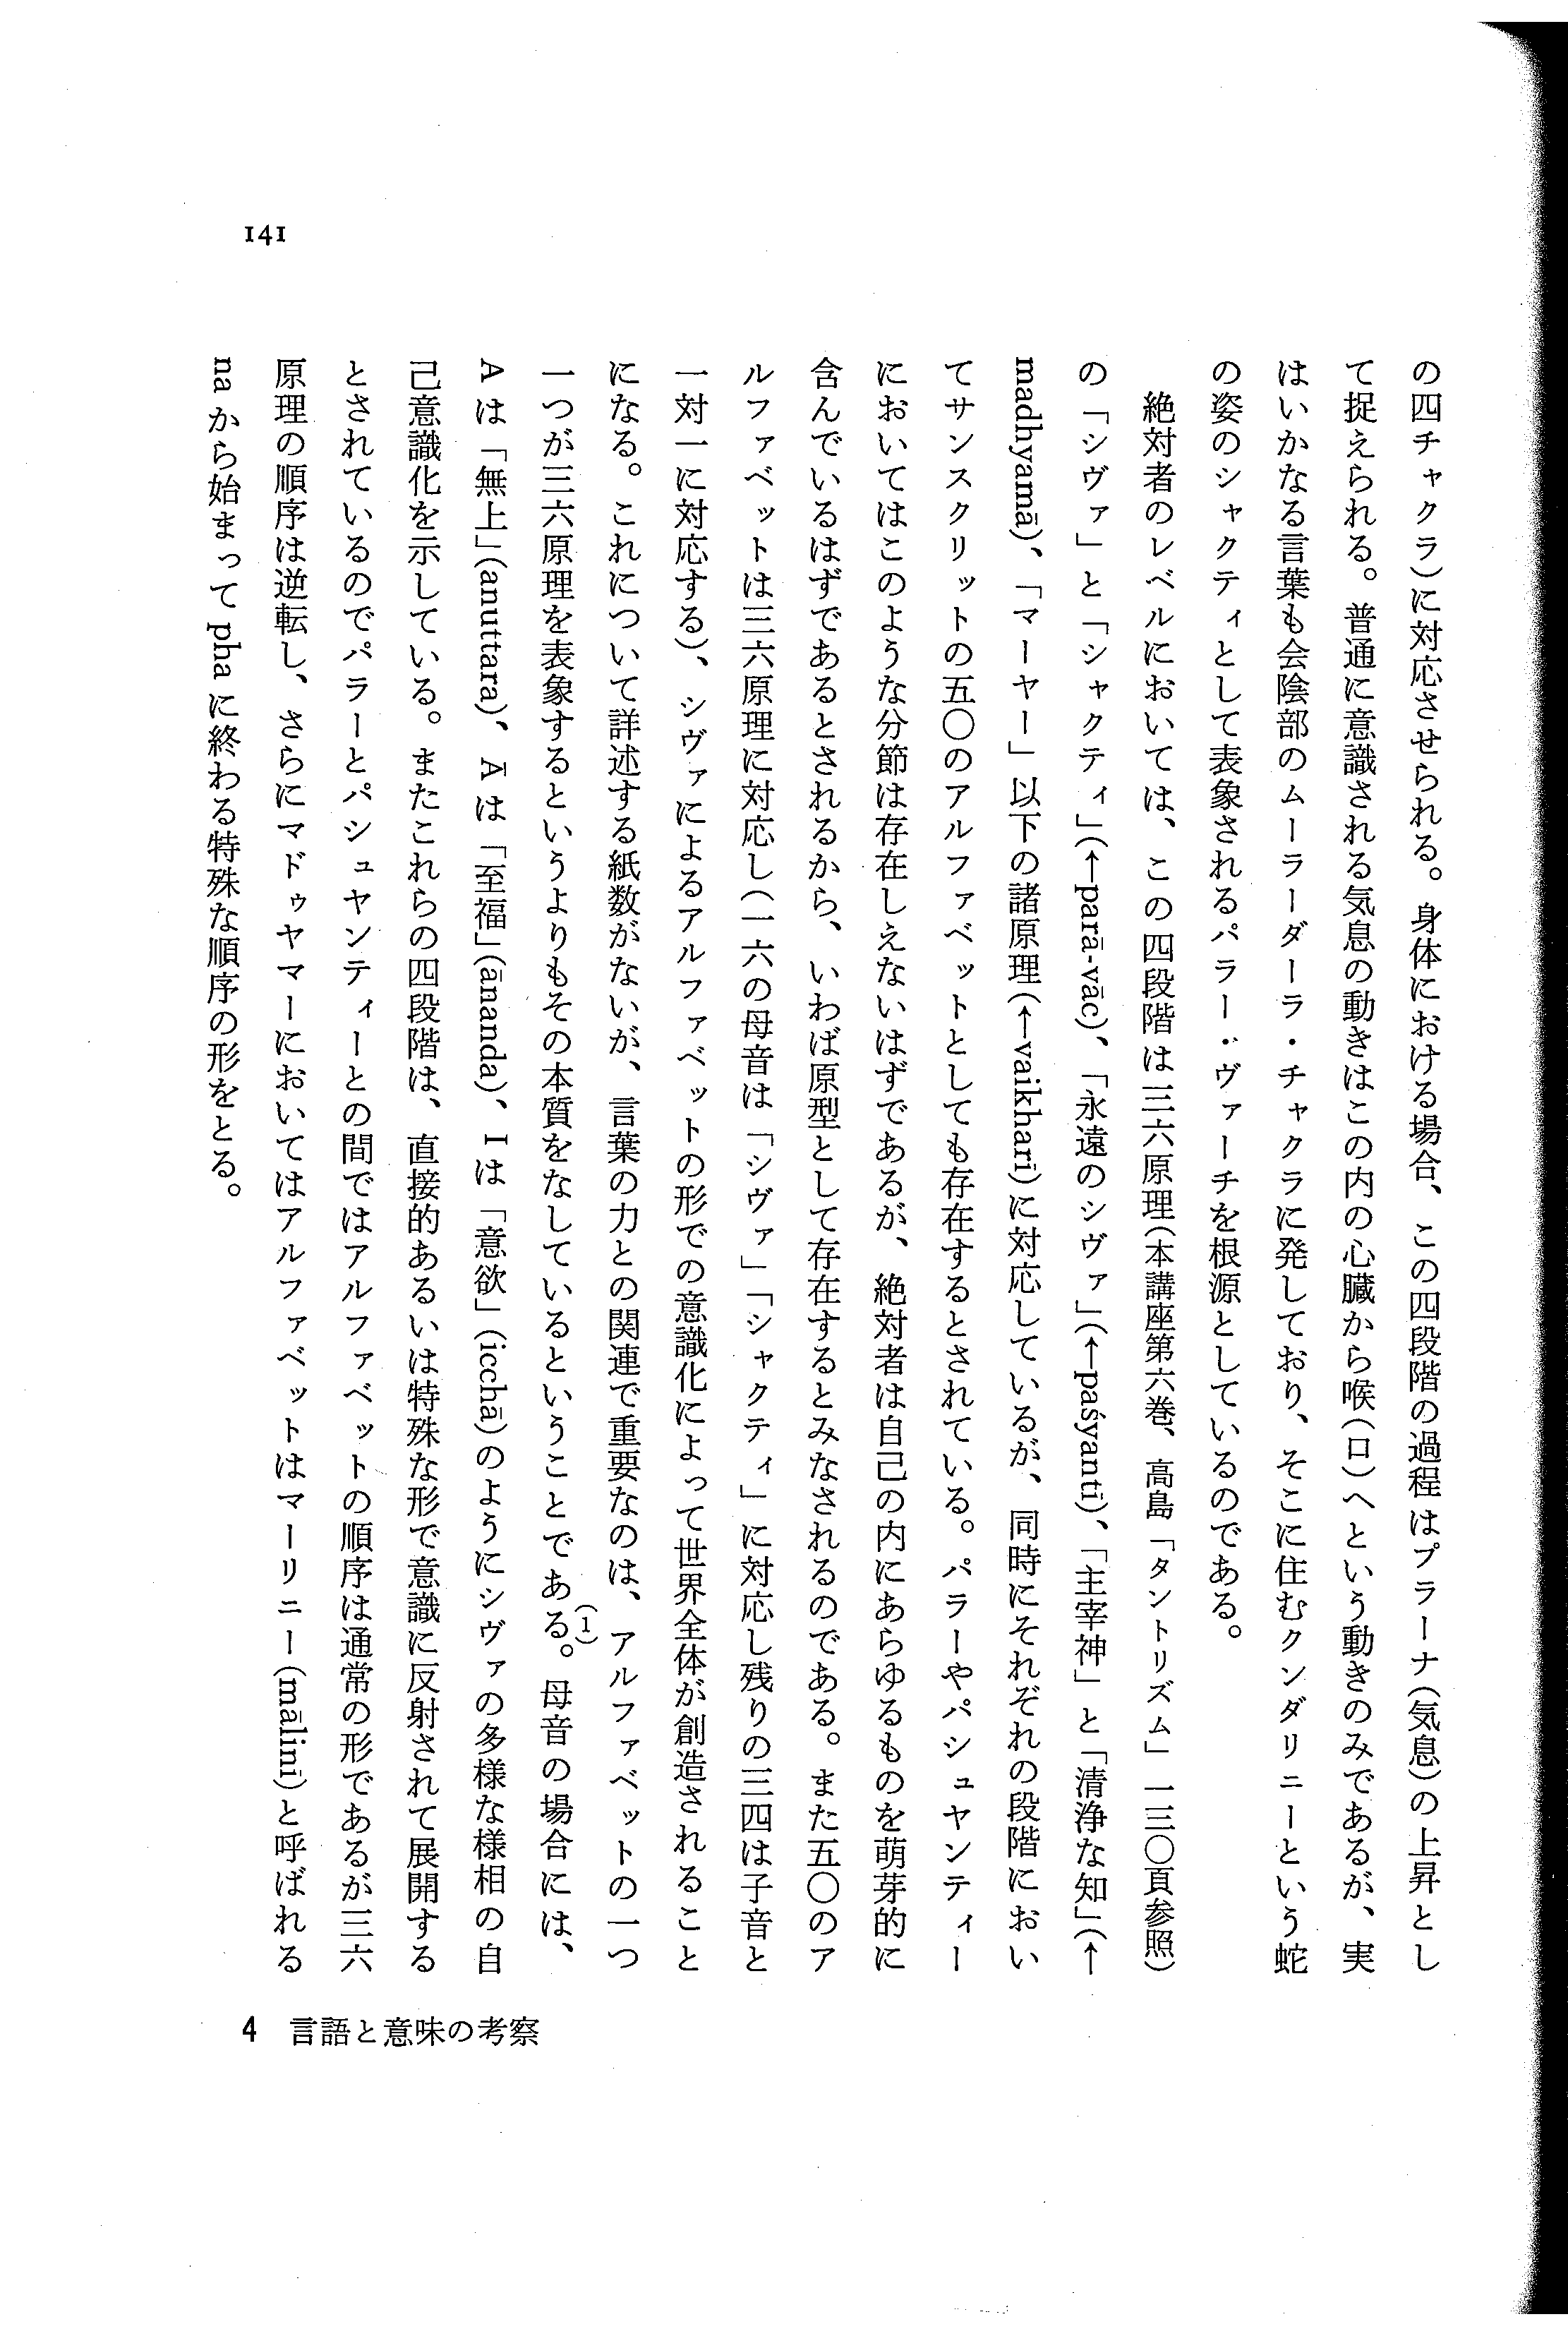 の四チャクラ)に対応させられる。身体における場合、この四段階の過程はプラーナ(気息)の上昇とし
て捉えられる。普通に意識される気息の動きはこの内の心臓から喉(口)へという動きのみであるが、実
はいかなる言葉も会陰部のムーラーダーラ・チャクラに発しており、そこに住むクンダリニーという蛇
の姿のシャクティとして表象されるパラー・ヴァーチを根源としているのである。
絶対者のレベルにおいては、この四段階は三六原理(本講座第六巻、高島「タントリズム」一三〇頁参照)
の「シヴァ」と「シャクティ」(↑parā-vāc)、「永遠のシヴァ」(↑paśyantī)、「主宰神」と「清浄な知」(↑
madhyamā)、「マーヤー」以下の諸原理(↑vaikharī)に対応しているが、同時にそれぞれの段階におい
てサンスクリットの五〇のアルファベットとしても存在するとされている。パラーやパシュヤンティー
においてはこのような分節は存在しえないはずであるが、絶対者は自己の内にあらゆるものを萌芽的に
含んでいるはずであるとされるから、いわば原型として存在するとみなされるのである。また五〇のア
ルファベットは三六原理に対応し(一六の母音は「シヴァ」「シャクティ」に対応し残りの三四は子音と
一対一に対応する)、シヴァによるアルファベットの形での意識化によって世界全体が創造されること
になる。これについて詳述する紙数がないが、言葉の力との関連で重要なのは、アルファベットの一つ
一つが三六原理を表象するというよりもその本質をなしているということである。(1)母音の場合には、
Aは「無上」(anuttara)、Āは「至福」(ānanda)、Iは「意欲」(icchā)のようにシヴァの多様な様相の自
己意識化を示している。またこれらの四段階は、直接的あるいは特殊な形で意識に反射されて展開する
とされているのでパラーとパシュヤンティーとの間ではアルファベットの順序は通常の形であるが三六
原理の順序は逆転し、さらにマドゥヤマーにおいてはアルファベットはマーリニー(mālinī)と呼ばれる
naから始まってphaに終わる特殊な順序の形をとる。
141
4 言語と意味の考察